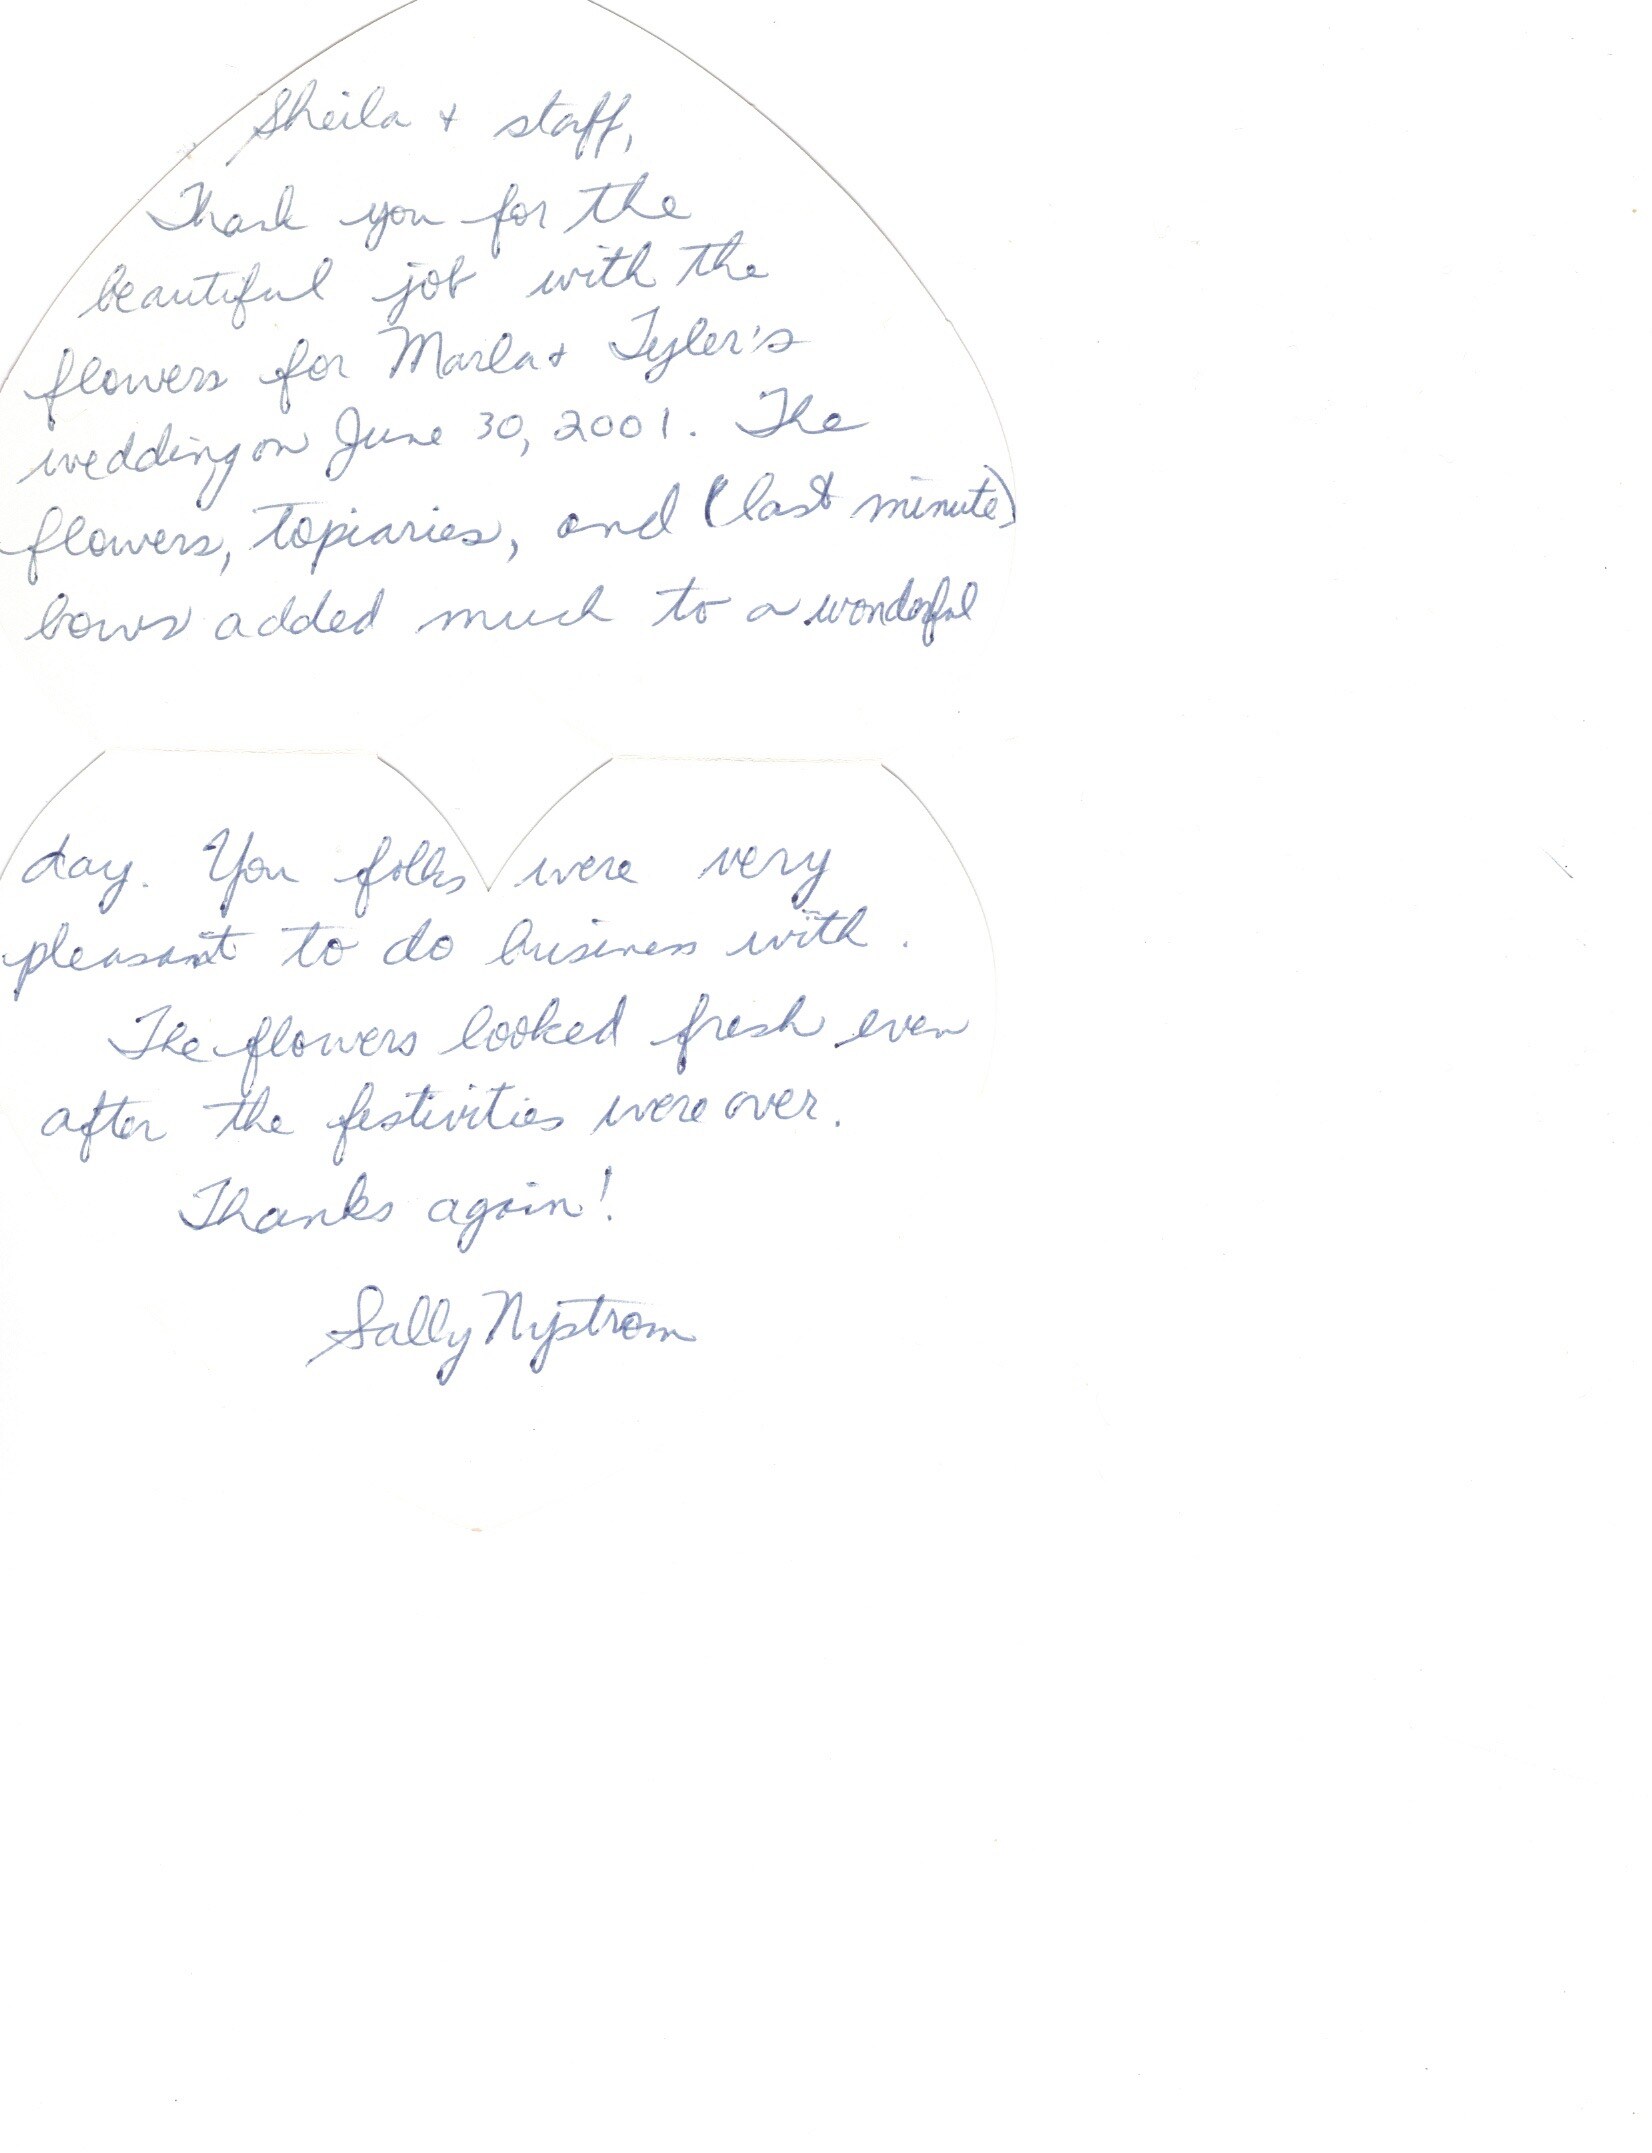 Sheila + staff,
Thank you for the
beautiful job with the
flowers for Marla + Tyler's
wedding on June 30, 2001. The
flowers, topiaries, and (last minute)
bows added much to a wonderful
day. You folks were very
pleasant to do business with.
The flowers looked fresh even
after the festivities were over.
Thanks again!
Sally Nystrom